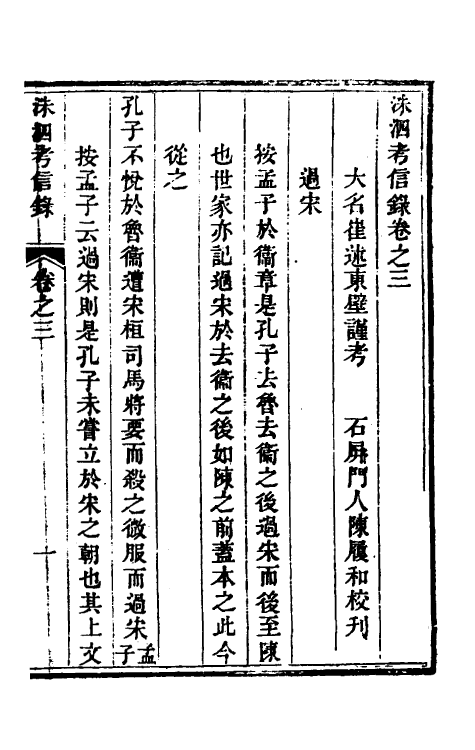 洙泗考信錄卷之三
大名崔述東壁謹考　石屏門人陳履和校刊
過宋
按孟子於衞章是孔子去魯去衞之後過宋而後至陳
也世家亦記過宋於去衞之後如陳之前蓋本之此今
從之
孔子不悅於魯衞遭宋桓司馬將要而殺之微服而過宋孟子
按孟子云過宋則是孔子未嘗立於宋之朝也其上文
洙泗考信錄　卷之三　一